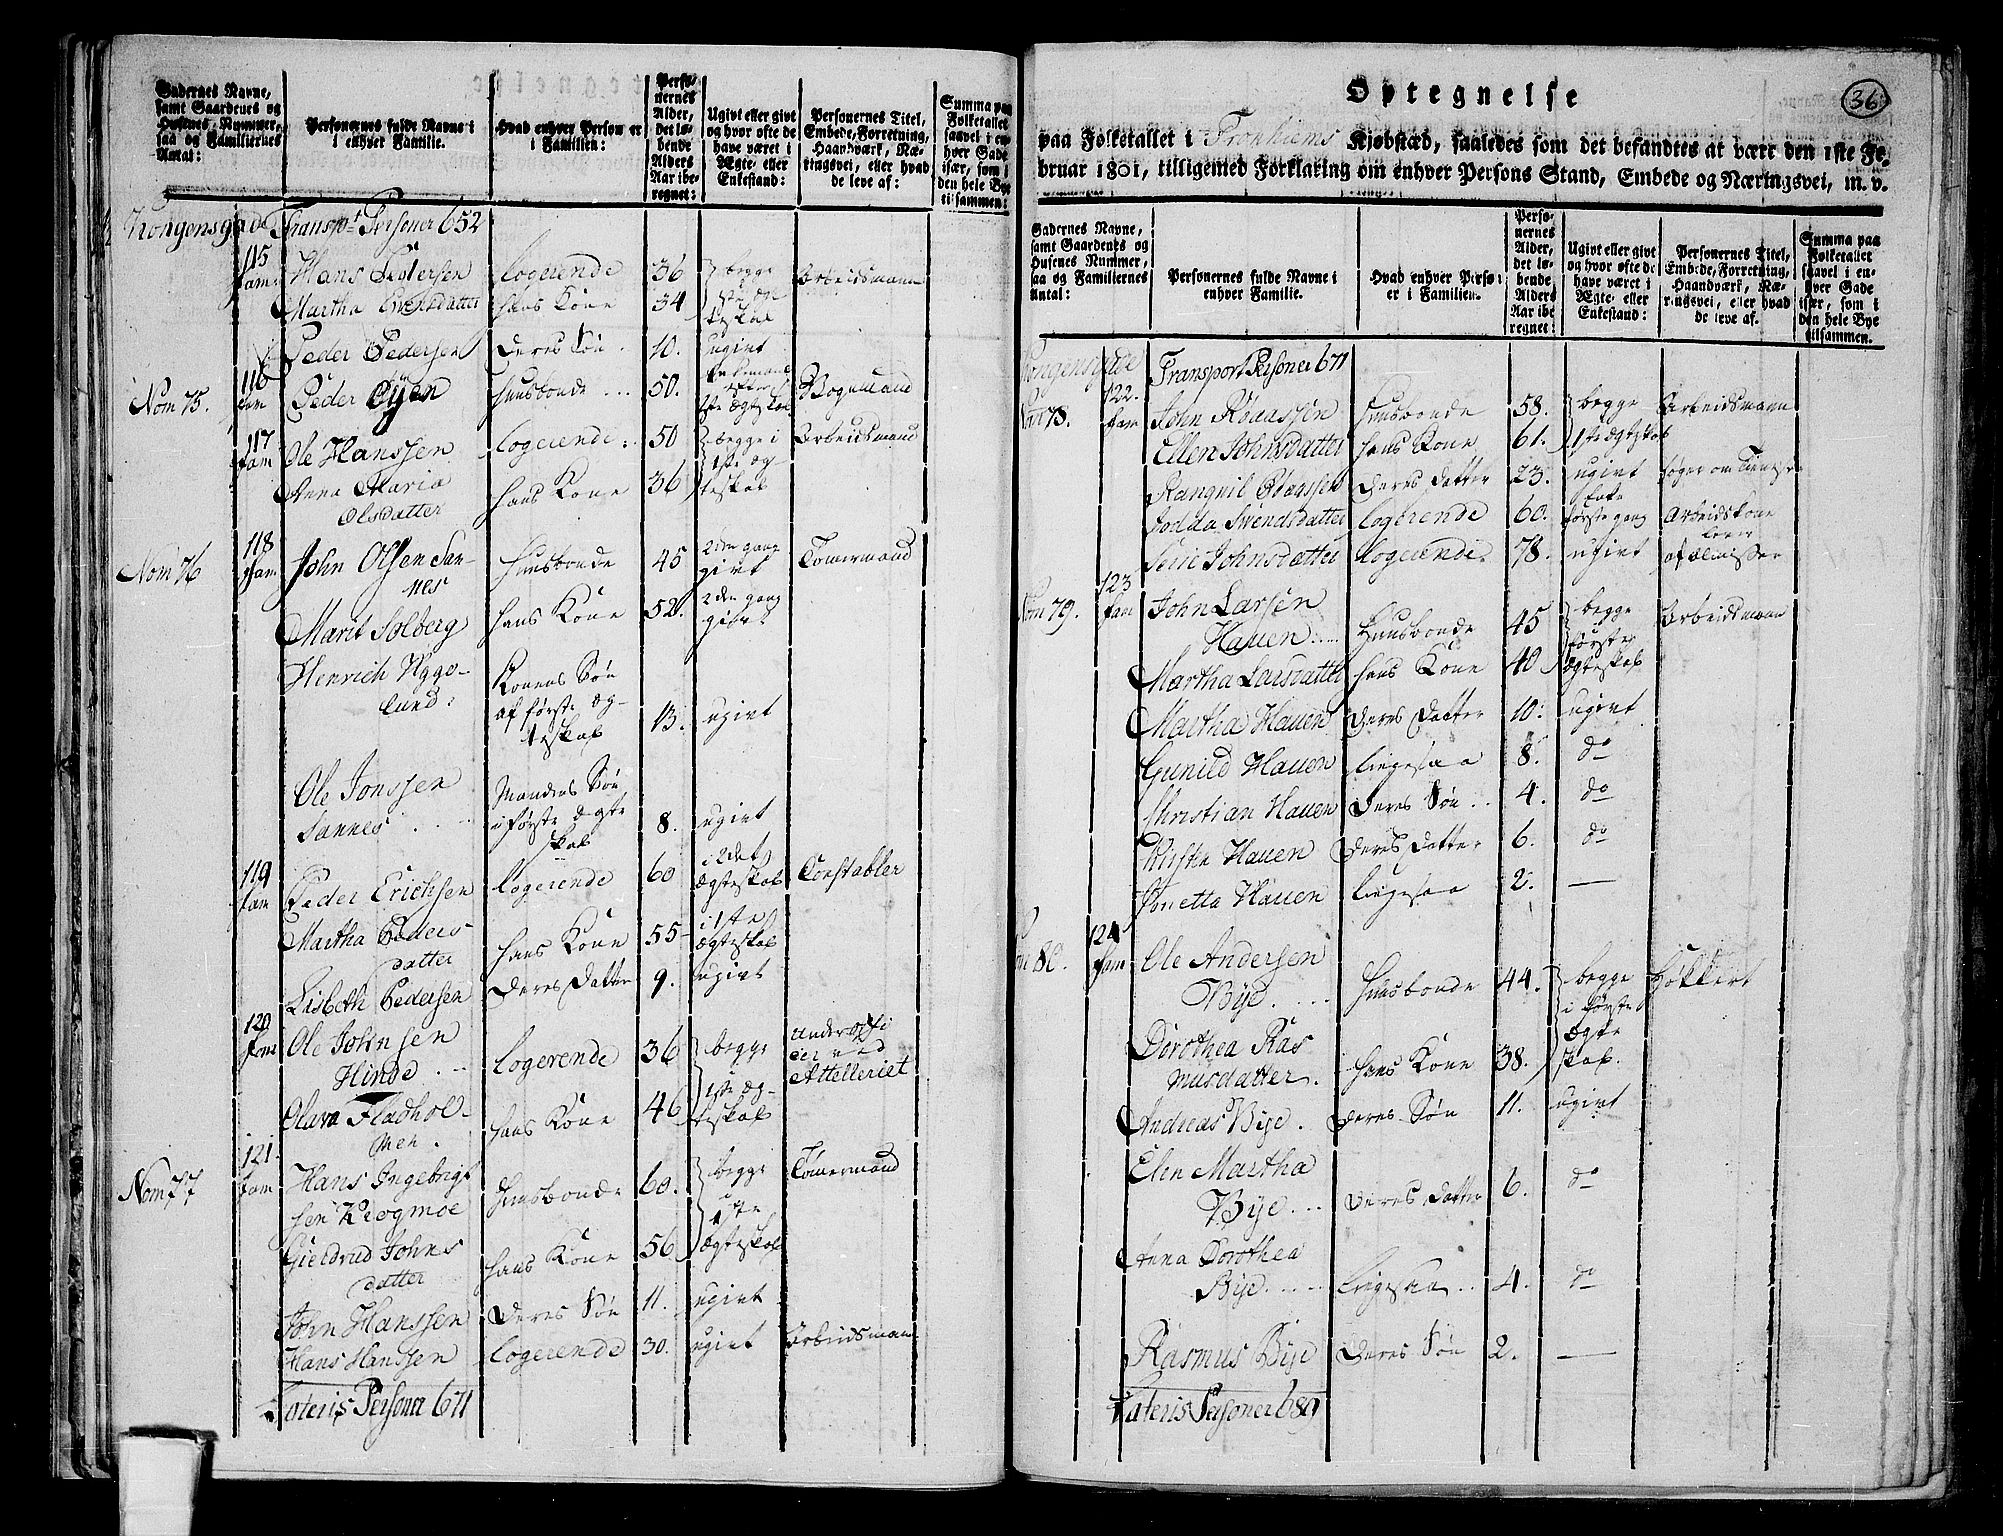 Gadernes Navne, samt Gaardenes og Husenes Nummer, saa og Familiernes Antal:
Personernes fulde Navne i enhver Familie.
Hvad enhver Person er i Familien:
Personernes Alder, det løbende Alders Aar iberegnet:
Ugivt eller givt og hvor ofte de have været i Ægte- eller Enkestand:
Personernes Titel, Embede, Forretning, Haandværk, Næringsvei, eller hvad de leve af:
Summa paa Folketallet saavel i enhver Gade især, som i den hele Bye tilsammen:
Kongensgade Transpt Personer 652
115 fam Hans Pedersen Logerende 36 begge Arbeidsmann
Martha Erichsdatter hans Kone 34 1ste Ægteskab
Peder Pedersen deres Søn 10. ugivt
Nom 75. 116 fam Peder Øyen Huusbonde 50. Enkemand efter 1ste Ægteskab Bogemand
117 fam Ole Hanssen Logerende 50 begge i Arbeidsmand
Anna Maria hans Kone 36 1ste Æg-
Olsdatter teskab
Nom 76 118 fam John Olsen San- Huusbonde 45 2den gang Tømermand
nes givt
Marit Solberg hans Kone 52. 2den gang givt
Henrich Ugge- Konens Søn
lund: af første Æg-
teskab 13. ugivt
Ole Jonssen Mandens Søn
Sannes i første Ægte 8. ugivt
skab
119 fam Peder Erichsen Logerende 60 i 2det Ægteskab Constabler
Martha Peders hans Kone 55 i 1ste
datter Ægteskab
Lisbeth Pedersen deres Datter 9. ugivt
120 fam Ole Johnsen Logerende 36 begge Underofi
Hinde cer ved
Attelleriet
Olava Fladhol- hans Kone 46 1ste Æg-
men. teskab
Nom 77 121. fam Hans Ingebrigt Huusbonde 60. begge Tømermand
sen Krogmoe i 1ste
Gieldrud Johns hans Kone 56 Ægteskab
datter
John Hanssen deres Søn 11. ugivt
Hans Hanssen Logerende 30. ugivt Arbeidsmann
Lateris Personer 671
36
Optegnelse
paa Folketallet i Tronhiems Kjøbstæd, saaledes som det befandtes at være den 1ste Fe-
bruar 1801, tilligemed Forklaring om enhver Persons Stand, Embede og Næringsvei, m. v.
Gadernes Navne, samt Gaardenes og Husenes Nummer, saa og Familiernes Antal:
Personernes fulde Navne i enhver Familie.
Hvad enhver Person er i Familien.
Personernes Alder, det løbende Alders Aar iberegnet:
Ugivt eller givt og hvor ofte de have været i Ægte- eller Enkestand:
Personernes Titel, Embede, Forretning, Haandværk, Næringsvei, eller hvad de leve af.
Summa paa Folketallet saavel i enhver Gade især, som i den hele Bye tilsammen.
Kongensgade Transport Personer 671
78. 122. fam John Roaessen Huusbonde 58. begge Arbeidsmann
Ellen Johnsdatter hans Kone 61. 1ste Ægteskab
Ranguil deres Datter 23. ugivt søger om Tieneste
Svendsdatter Logerende 60. Enke første gang Arbeidskone
Johnsdatter Logerende. 78. ugivt lever af Almisser
Nom 79. 123 fam John Larsen
Hauen Huusbonde 45 begge Arbeidsmann
første
Martha Larsdatter hans Kone 40 Ægteskab
Martha Hauen deres Datter 10. ugivt
Gunild Hauen Ligesaa 8. do
Christian Hauen deres Søn 4. do
Hauen deres Datter 6. do
Jonetta Hauen Ligesaa 2. —
80. 124 fam Ole Andersen
Bye. Huusbonde 44. begge Høkkert
i første
Dorothea Ras Ægte
musdatter. hans Kone 38. skab.
Andreas Bye. deres Søn 11. ugivt
Elen Martha
Bye deres Datter 6. do
Anna Dorothea
Bye Ligesaa 4. do
Rasmus Bye deres Søn 2. —
Lateris Personer 689